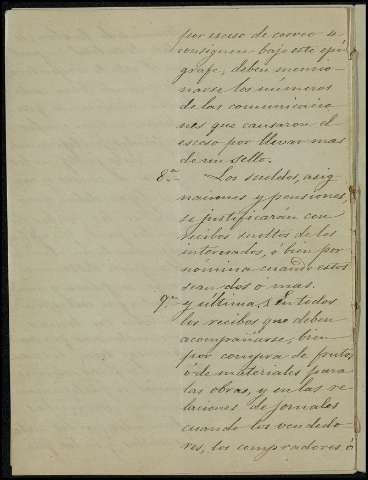 por esceso de correo se
consignen bajo este epí-
grafe, deben mencio-
narse los números
de las comunicacio-
nes que causaron el
esceso por llevar mas
de un sello.
8ª- Los sueldos, asig-
naciones y pensiones,
se justificarán con
recibos sueltos de los
interesados, ó bien por
nómina cuando estos
sean dos ó mas.
9ª y última. En todos
los recibos que deben
acompañarse, bien
por compra de frutos
ó de materiales para
las obras, y en las re-
laciones de jornales
cuando los vendedo-
res, los compradores ó